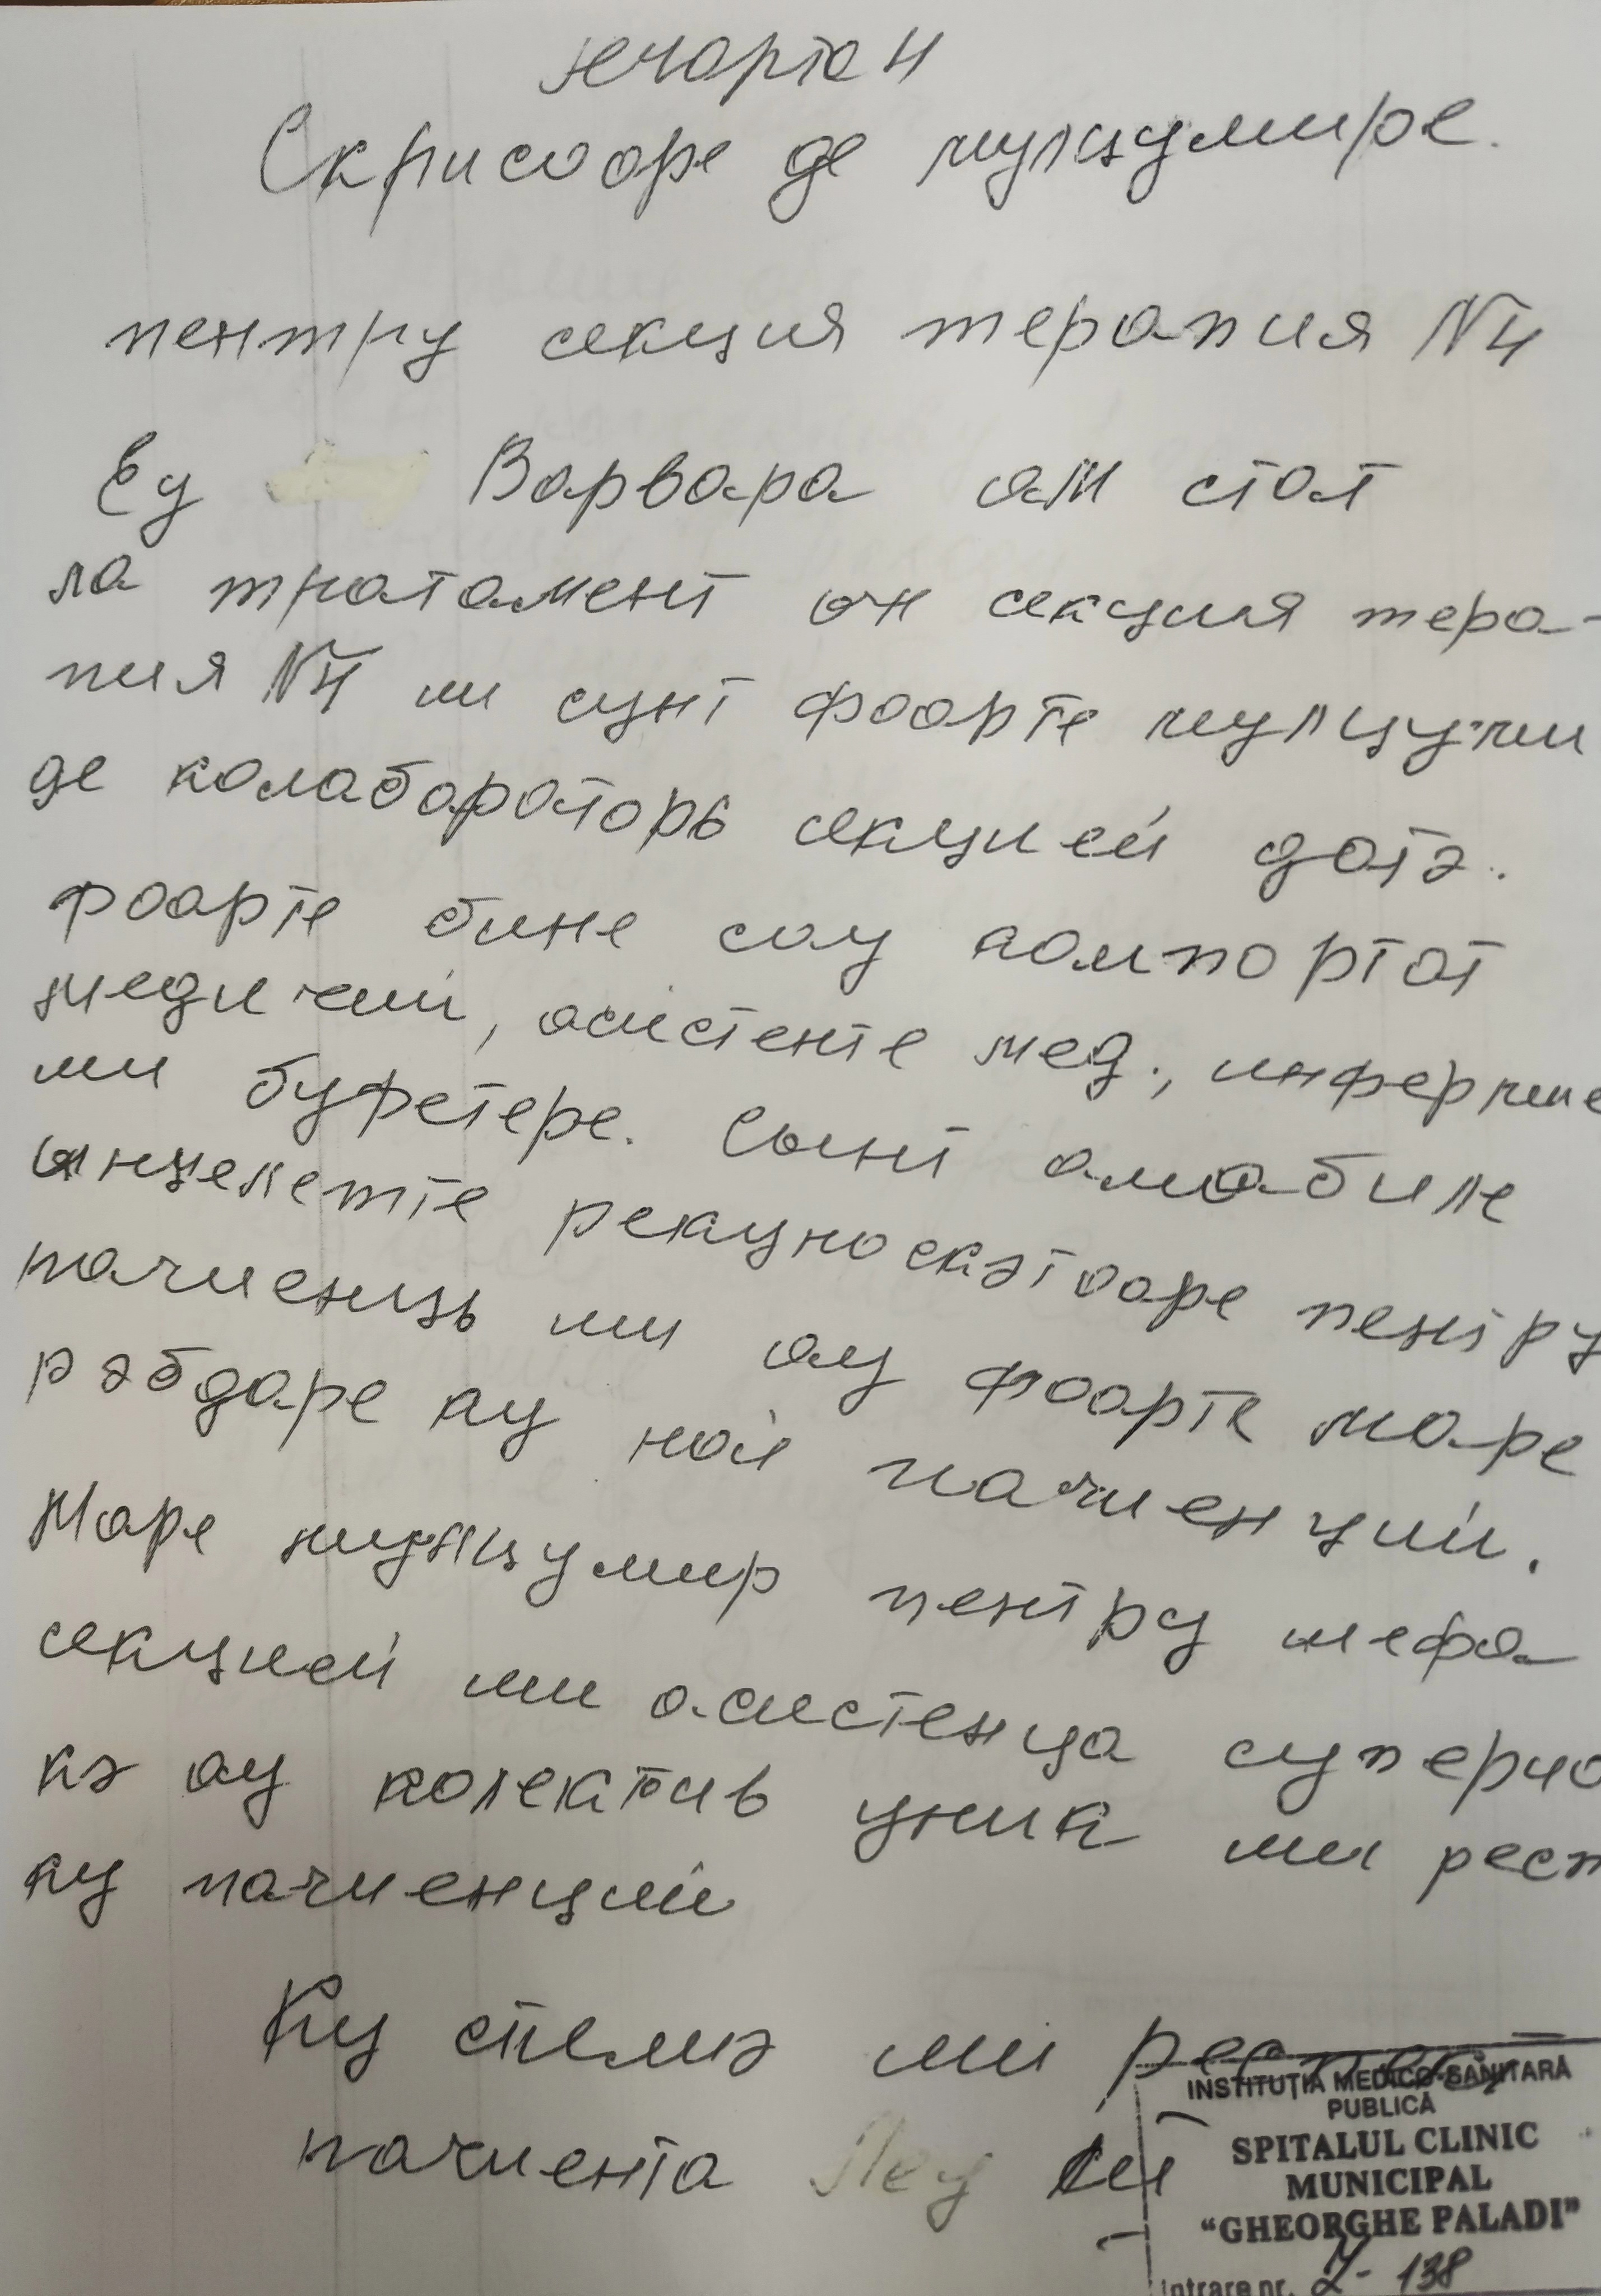 Скрисоаре де мулцумире.
пентру секция терапия N4
Еу Варвара ам стат
ла тратамент ын секция тера-
пия N4 ши сунт фоарте мулцуми
де колабораторь секцией датэ.
фоарте бине сау компортат
медичий, асистенте мед., инфермие
ши буфетере. Сынт амабиле
ынцелепте рекуноскэтоаре пентру
пачиенць ши ау фоарте маре
рэбдаре ку ной пачиенций.
Маре мулцумир пентру шефа
секцией ши асистенца суперио
кэ ау колектив уник ши респ
ку пачиенций
Ку стимэ ши респект
пачиента
INSTITUȚIA MEDICO-SANITARĂ
PUBLICĂ
SPITALUL CLINIC
MUNICIPAL
"GHEORGHE PALADI"
Intrare nr. 138